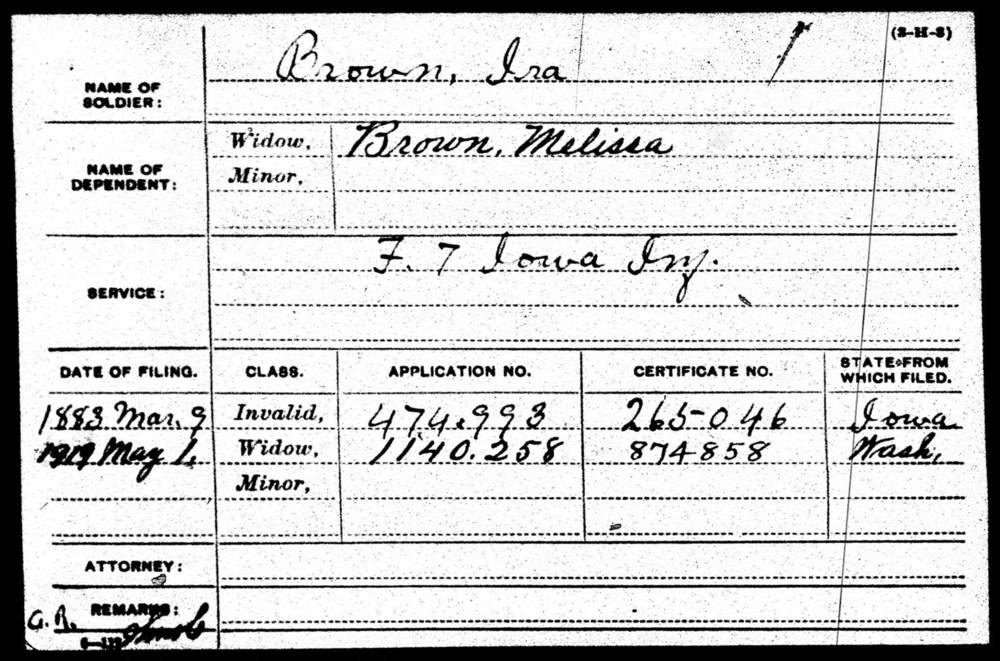 (3-H-3)
NAME OF SOLDIER: Brown, Ira
NAME OF DEPENDENT: Widow, Brown, Melissa
Minor,
SERVICE: F. 7 Iowa Inf.
DATE OF FILING. CLASS. APPLICATION NO. CERTIFICATE NO. STATE FROM WHICH FILED.
1883 Mar. 9 Invalid, 474.993 265046 Iowa
1919 May 1. Widow, 1140.258 874858 Wash.
Minor,
ATTORNEY:
REMARKS: